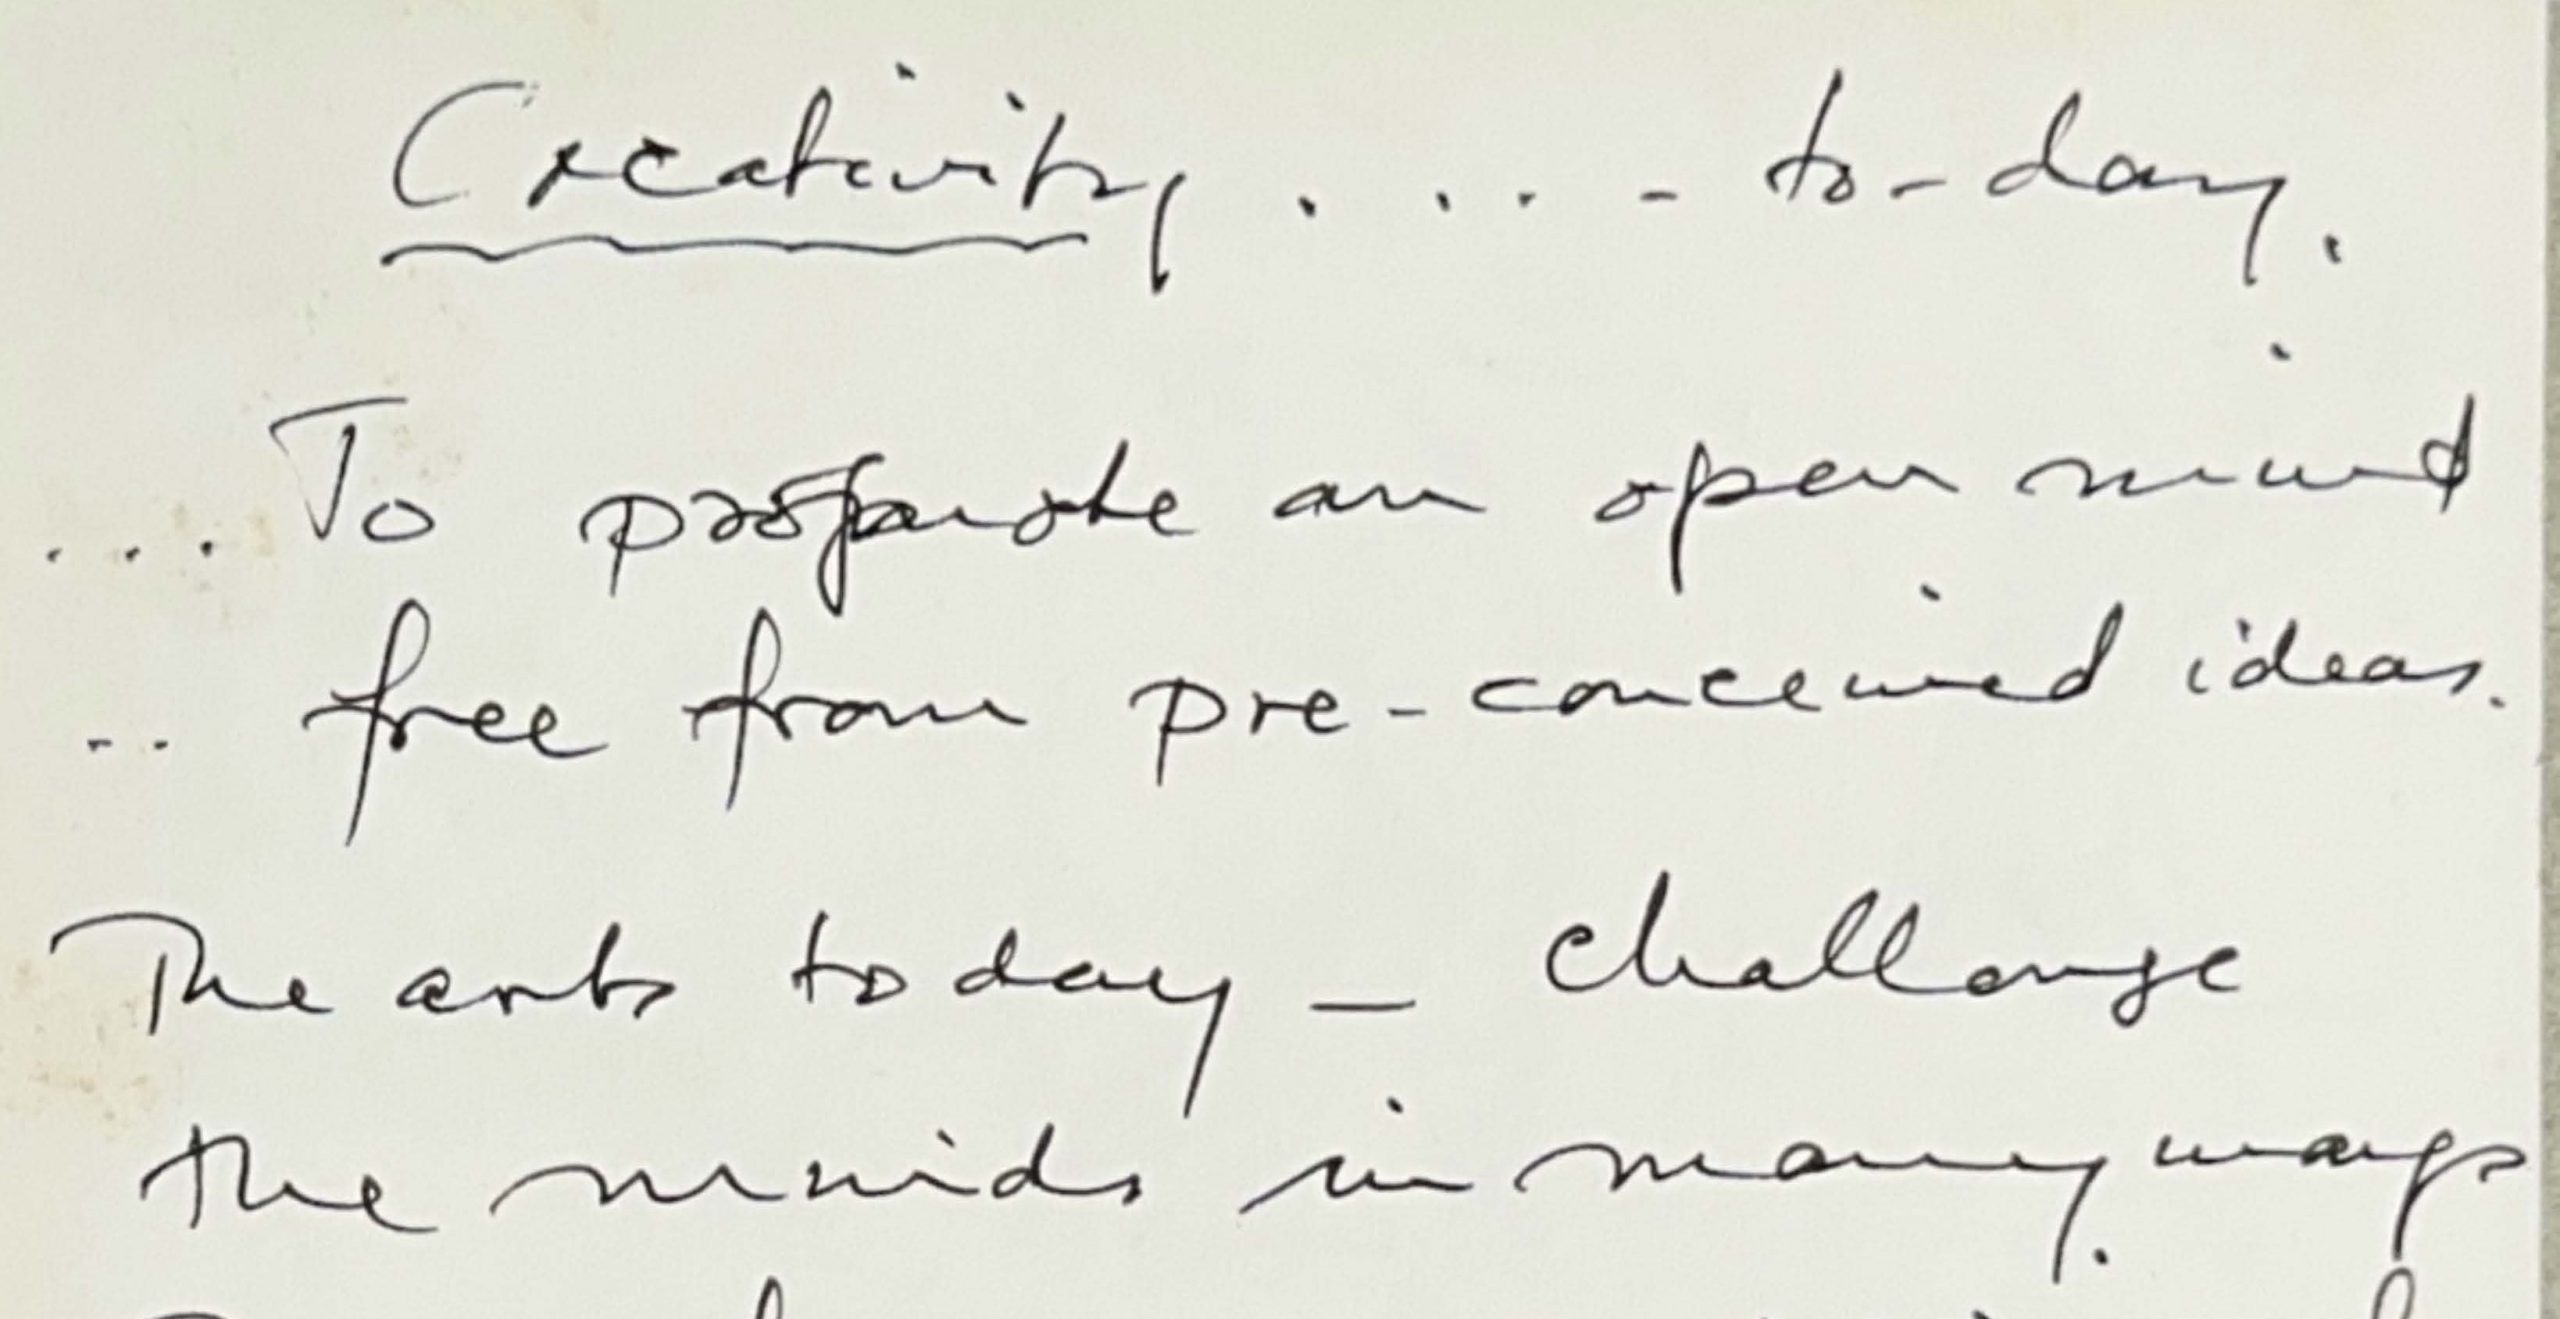 Creativity . . . - to-day.
... To an open mind
-- free from pre-conceived ideas.
The arts today – challenge
the minds in many ways